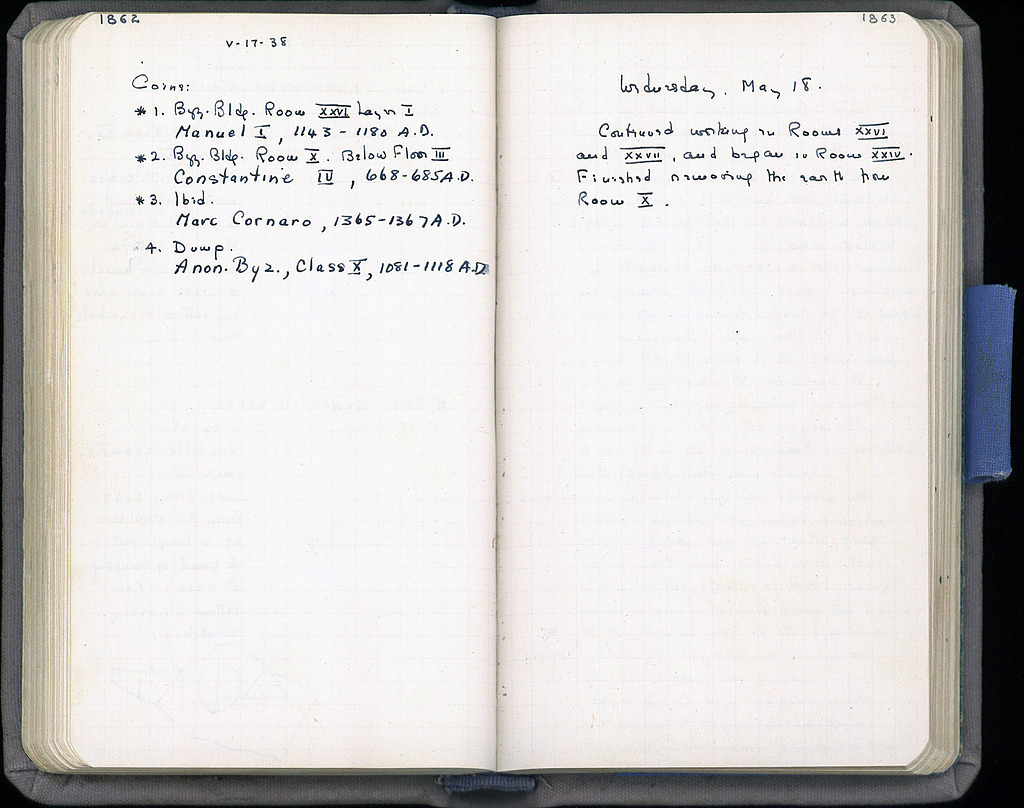 1862
V-17-38
Coins:
* 1. Byz. Bldg. Room XXVI Layer I
Manuel I, 1143-1180 A.D.
* 2. Byz. Bldg. Room X. Below Floor III
Constantine IV, 668-685 A.D.
* 3. Ibid.
Marc Cornaro, 1365-1367 A.D.
4. Dump.
Anon. Byz., Class X, 1081-1118 A.D.
1863
Wednesday, May 18.
Continued working in Rooms XXVI
and XXVII, and began in Room XXIV.
Finished removing the earth from
Room X.